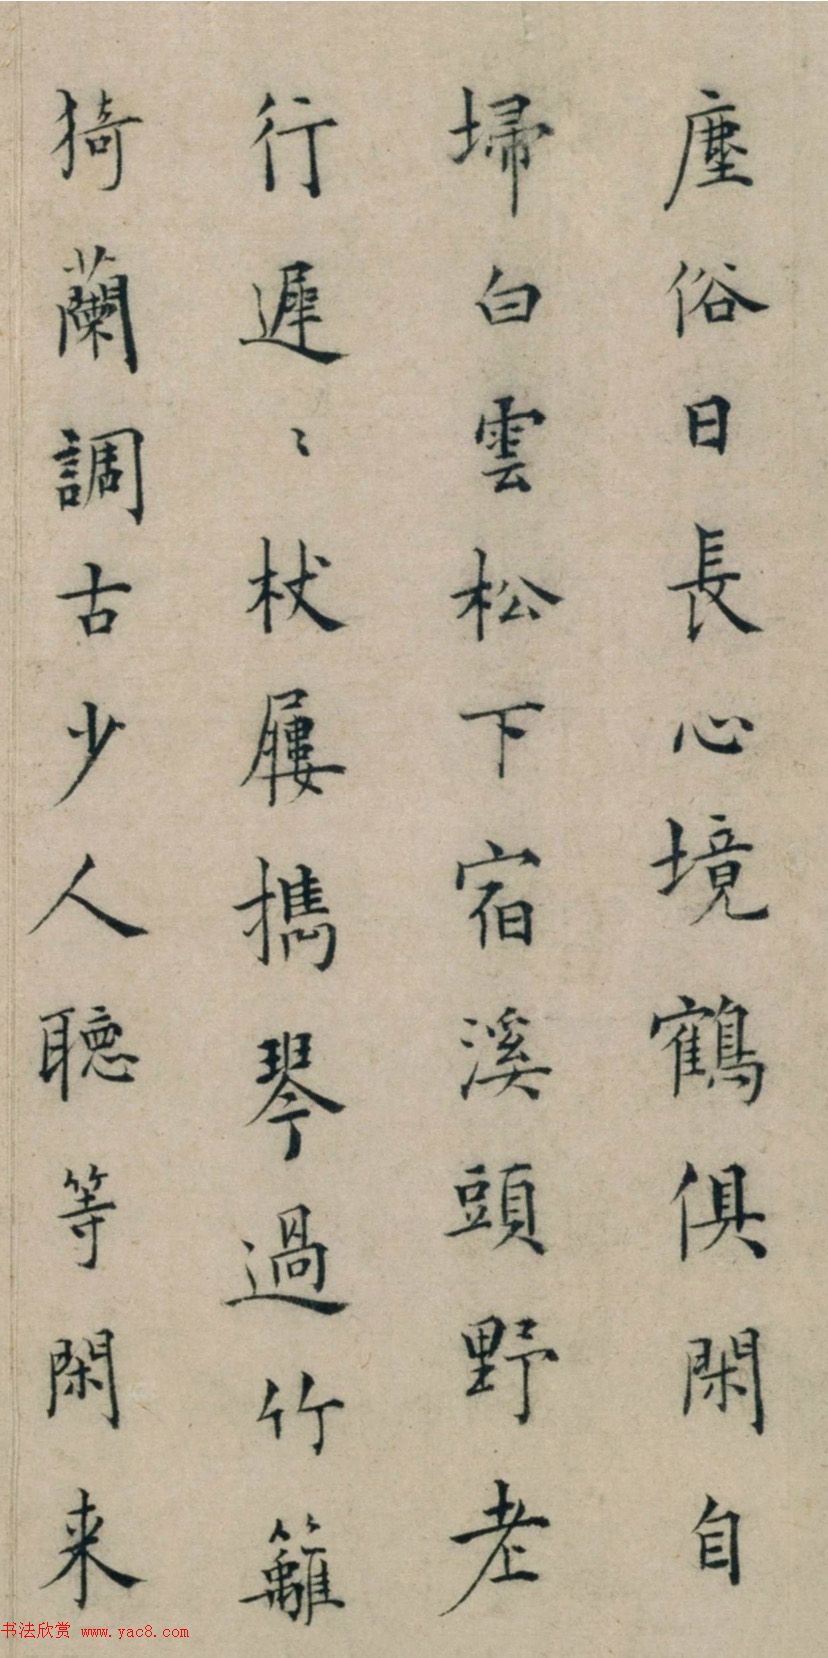 塵俗日長心境鶴俱閑自
埽白雲松下宿溪頭野老
行遲〻杖屨攜琴過竹籬
猗蘭調古少人聽等閑来
书法欣赏 www.yac8.com